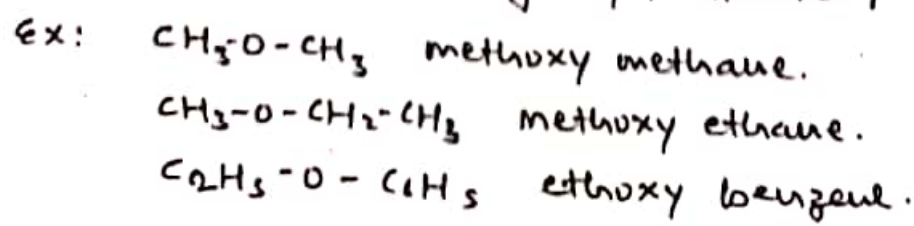 Ex: CH₃-O-CH₃ methoxy methane.
CH₃-O-CH₂-CH₃ methoxy ethane.
C₂H₅-O-C₆H₅ ethoxy benzene.